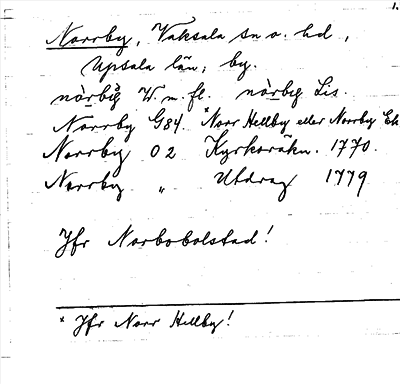 1.
Norrby, Vaksala sn o. hd,
Upsala län; by.
nòrby̆ W. m. fl. nòrbyg Lis.
Norrby G84. *Norr Hellby eller Norrby Ek
Norrby O 2 Kyrkoräkn. 1770.
Norrby „ Utdrag 1779
Jfr Norbobolstad!
* Jfr Norr Hellby!